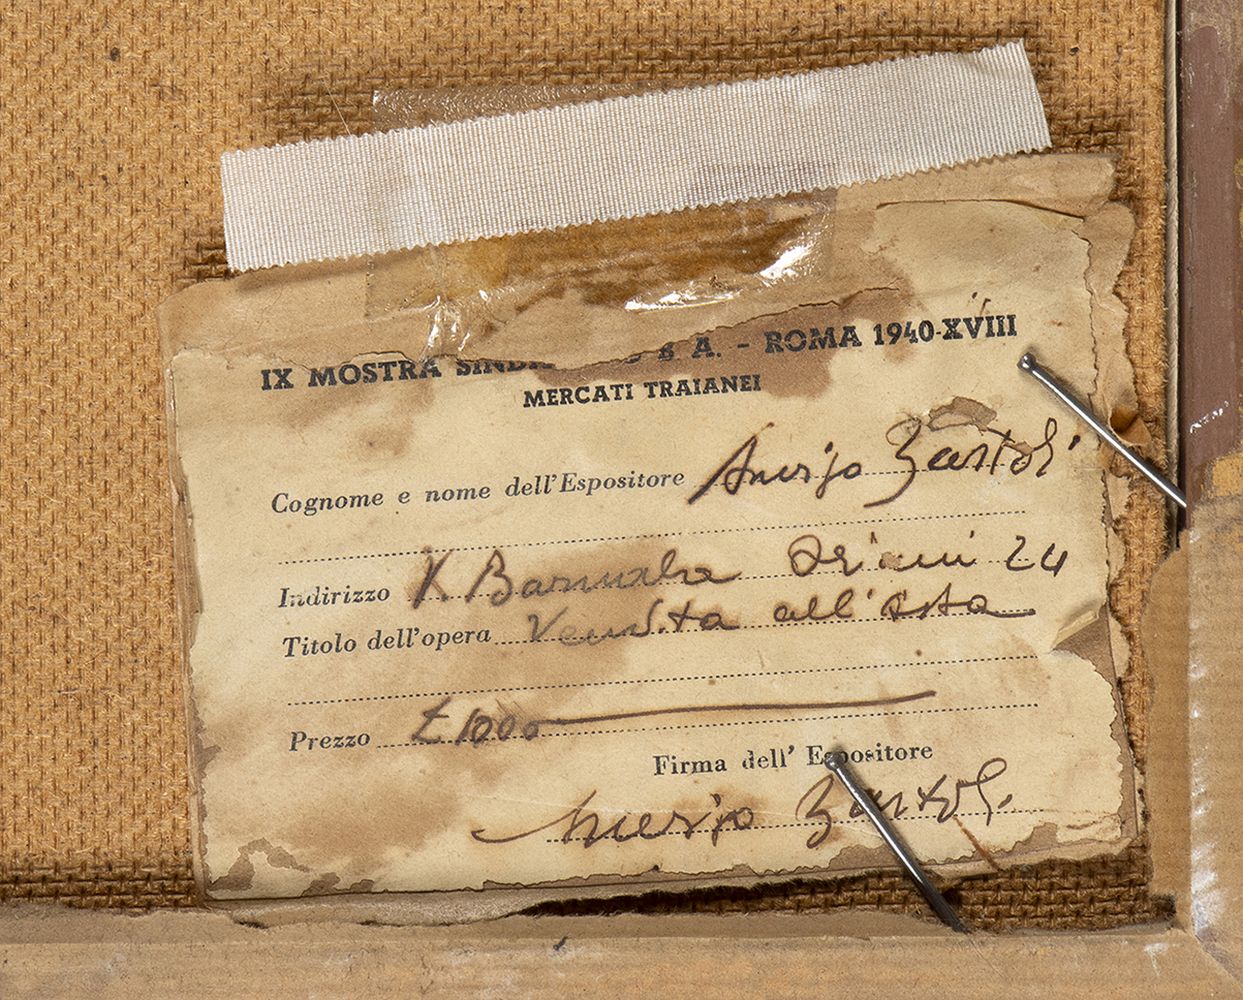 IX MOSTRA SIND B A. - ROMA 1940-XVIII
MERCATI TRAIANEI
Cognome e nome dell'Espositore Amerigo Bartoli
Indirizzo V. Barnaba Oriani 24
Titolo dell'opera Vendita all'asta
Prezzo £ 1000
Firma dell' Espositore
Amerigo Bartoli